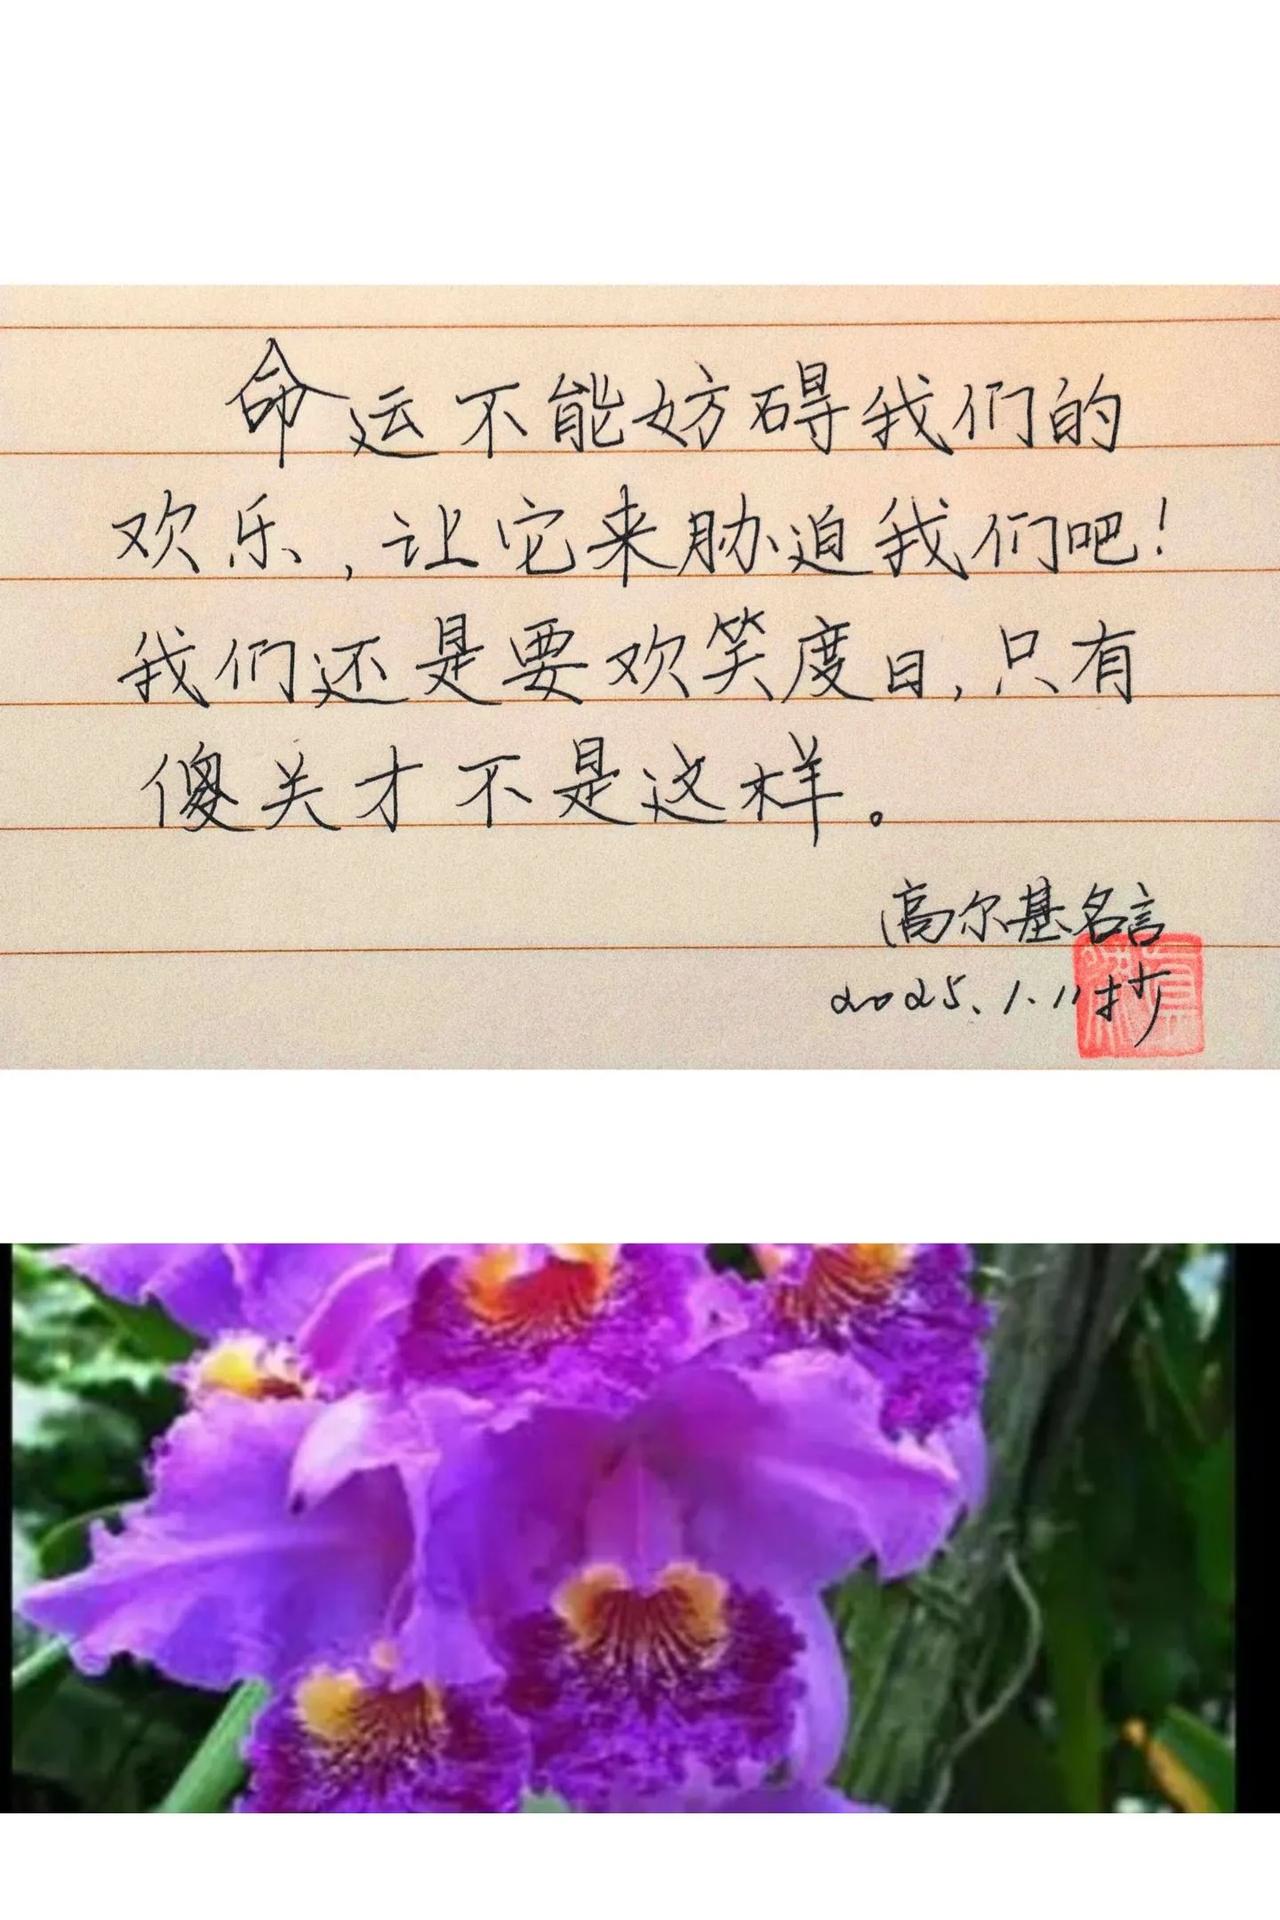 命运不能妨碍我们的
欢乐，让它来胁迫我们吧！
我们还是要欢笑度日，只有
傻关才不是这样。
高尔基名言
2025.1.11抄